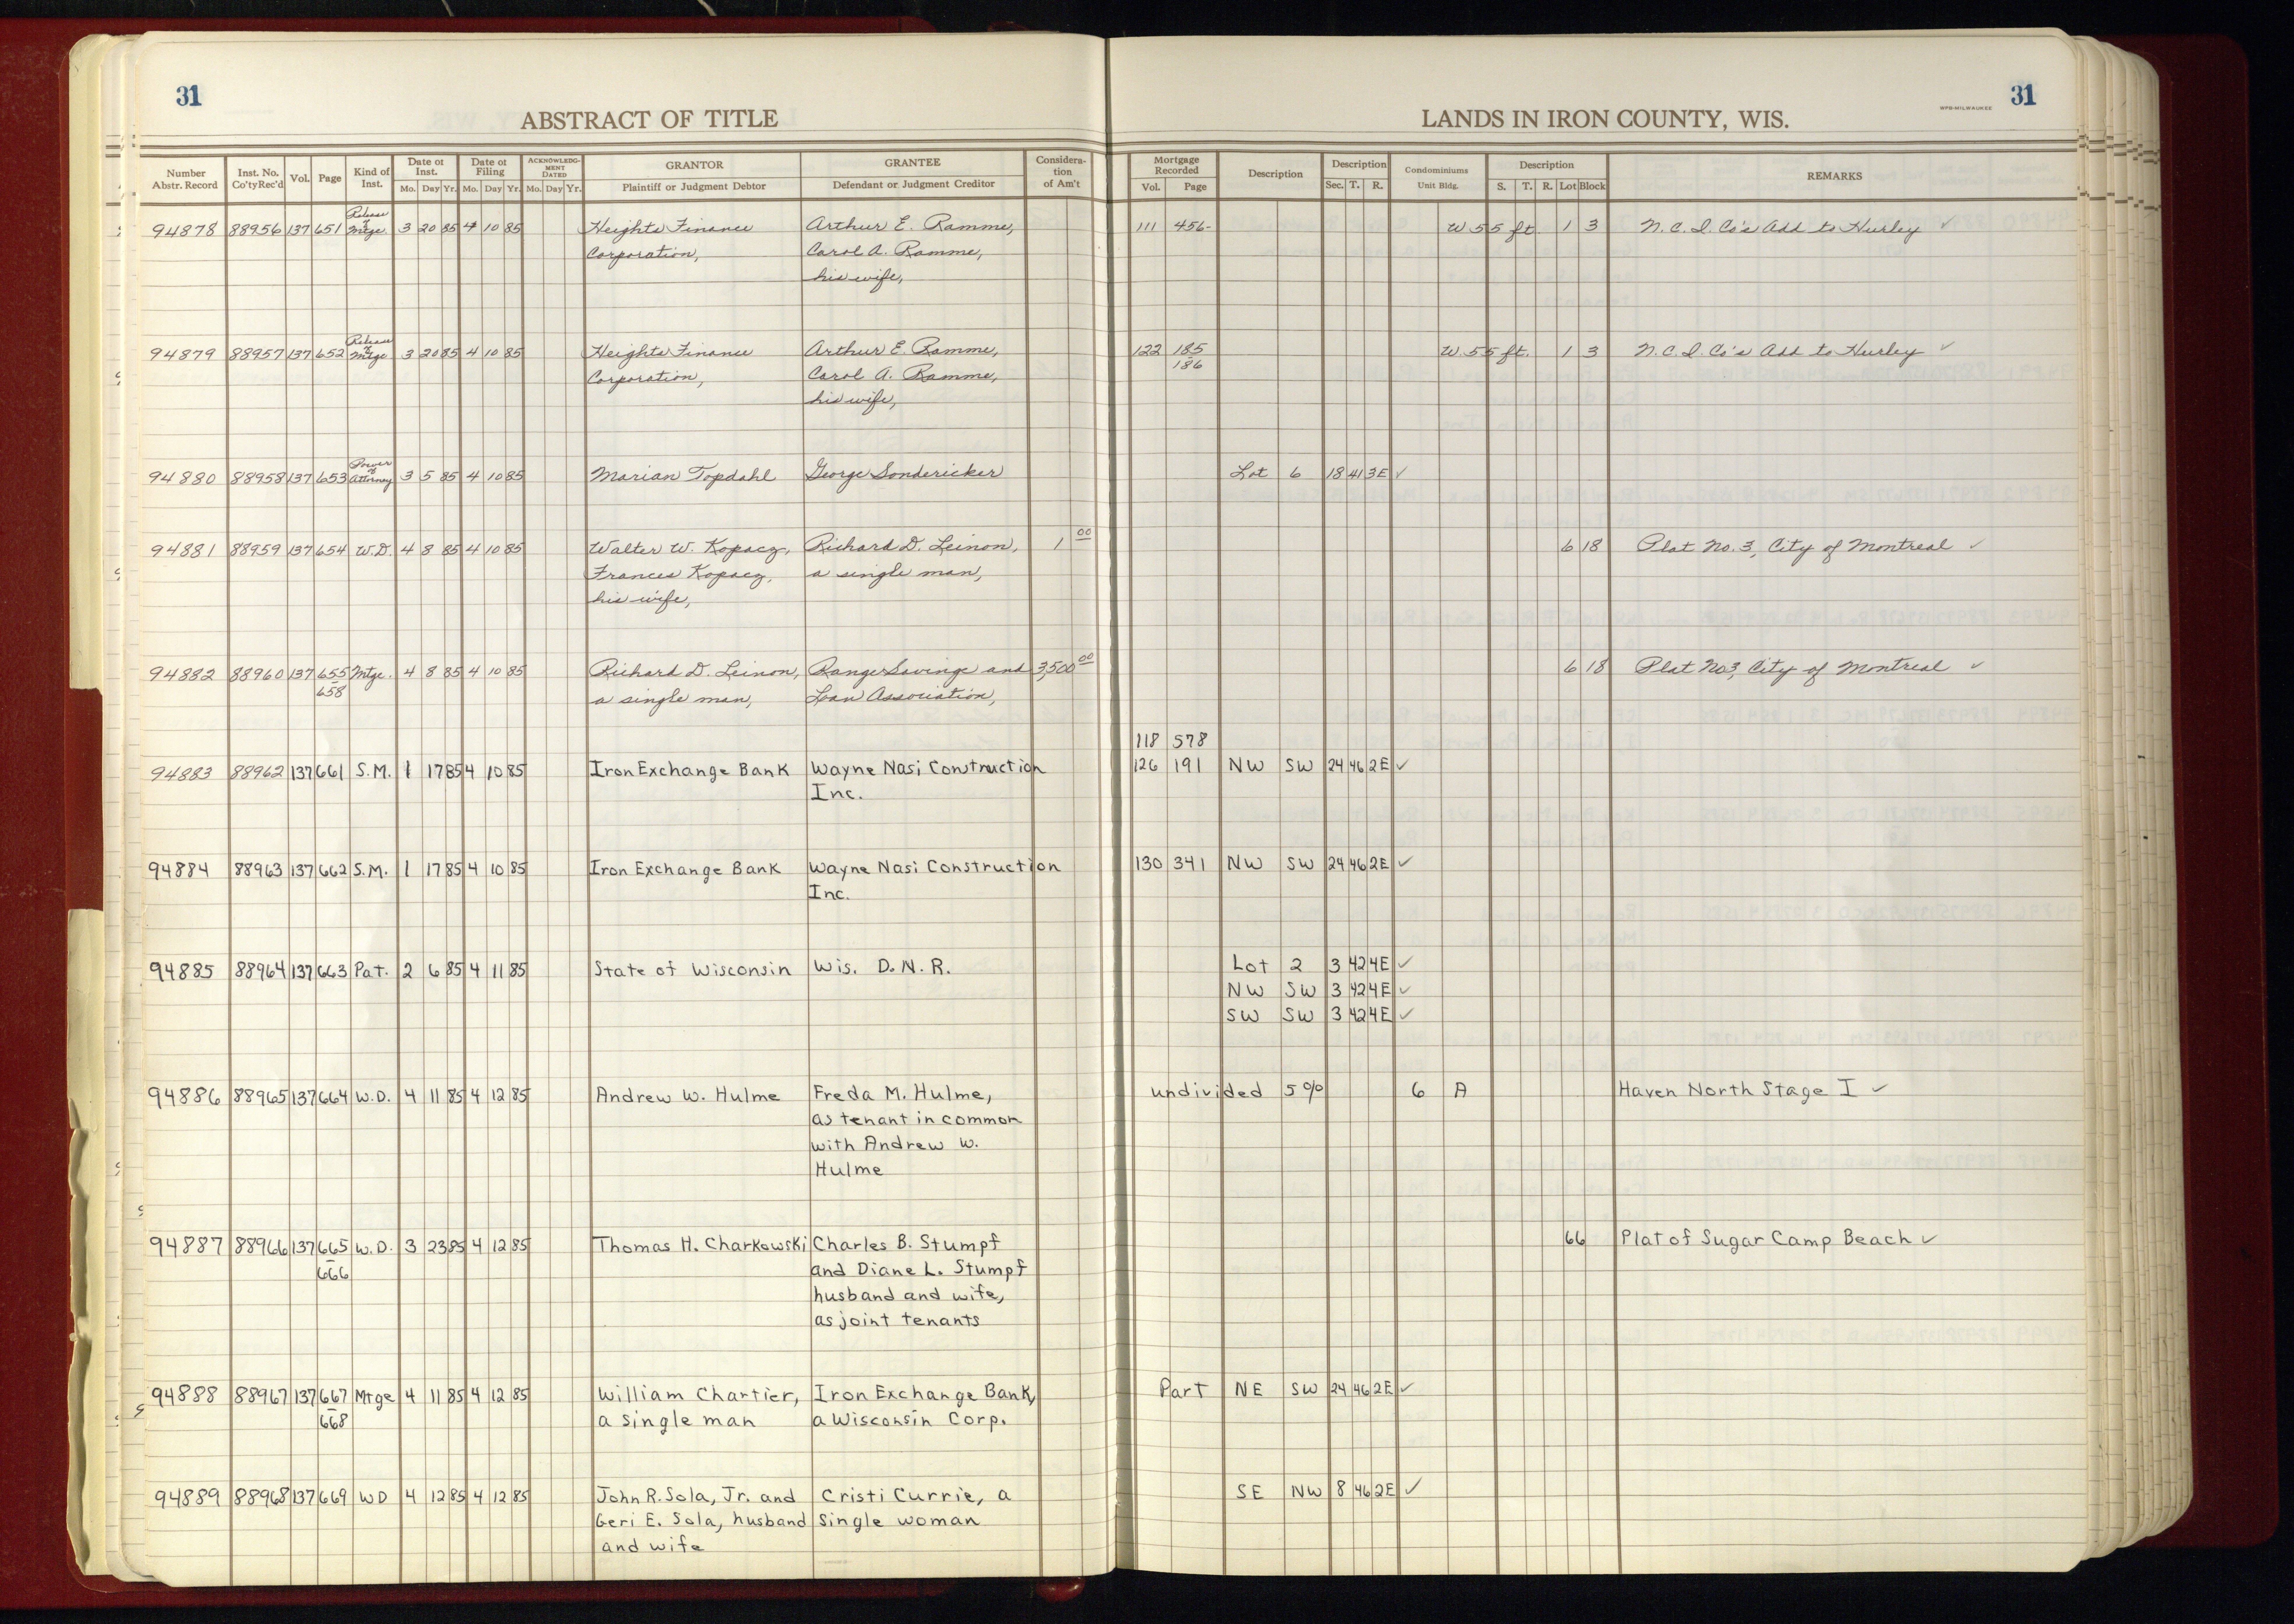 31
31
ABSTRACT OF TITLE
LANDS IN IRON COUNTY, WIS.
WPB-MILWAUKEE
Number Abstr. Record | Inst. No. Co'ty Rec'd | Vol. | Page | Kind of Inst. | Date of Inst. Mo. Day Yr. | Date of Filing Mo. Day Yr. | ACKNOWLEDGMENT DATED Mo. Day Yr. | GRANTOR Plaintiff or Judgment Debtor | GRANTEE Defendant or Judgment Creditor | Consideration of Am't | Mortgage Recorded Vol. Page | Description | Description Sec. T. R. | Condominiums Unit Bldg. | Description S. T. R. Lot Block | REMARKS
94878 88956 137 651 Release of Mtge. 3 20 85 4 10 85 Heights Finance Arthur E. Ramme, 111 456- W 55 ft. 1 3 N.C.I. Co's Add to Hurley ✓
Corporation, Carol A. Ramme,
his wife,
94879 88957 137 652 Release of Mtge 3 20 85 4 10 85 Heights Finance Arthur E. Ramme, 122 185 W 55 ft. 1 3 N.C.I. Co's Add to Hurley ✓
Corporation, Carol A. Ramme, 186
his wife,
94880 88958 137 653 Power of Attorney 3 5 85 4 10 85 Marian Topdahl George Sondericker Lot 6 18 41 3E ✓
94881 88959 137 654 W.D. 4 8 85 4 10 85 Walter W. Kopacz, Richard D. Leinon, 1 00 6 18 Plat No. 3, City of Montreal ✓
Frances Kopacz, a single man,
his wife,
94882 88960 137 655 Mtge. 4 8 85 4 10 85 Richard D. Leinon, Range Savings and 3,500 00 6 18 Plat No 3, City of Montreal ✓
658 a single man, Loan Association,
118 578
94883 88962 137 661 S.M. 1 17 85 4 10 85 Iron Exchange Bank Wayne Nasi Construction 126 191 NW SW 24 46 2E ✓
Inc.
94884 88963 137 662 S.M. 1 17 85 4 10 85 Iron Exchange Bank Wayne Nasi Construction 130 341 NW SW 24 46 2E ✓
Inc.
94885 88964 137 663 Pat. 2 6 85 4 11 85 State of Wisconsin Wis. D.N.R. Lot 2 3 42 4E ✓
NW SW 3 42 4E ✓
SW SW 3 42 4E ✓
94886 88965 137 664 W.D. 4 11 85 4 12 85 Andrew W. Hulme Freda M. Hulme, undivided 5% 6 A Haven North Stage I ✓
as tenant in common
with Andrew W.
Hulme
94887 88966 137 665 W.D. 3 23 85 4 12 85 Thomas H. Charkowski Charles B. Stumpf 66 Plat of Sugar Camp Beach ✓
666 and Diane L. Stumpf
husband and wife,
as joint tenants
94888 88967 137 667 Mtge 4 11 85 4 12 85 William Chartier, Iron Exchange Bank, Part NE SW 24 46 2E ✓
668 a single man a Wisconsin Corp.
94889 88968 137 669 WD 4 12 85 4 12 85 John R. Sola, Jr. and Cristi Currie, a SE NW 8 46 2E ✓
Geri E. Sola, husband single woman
and wife